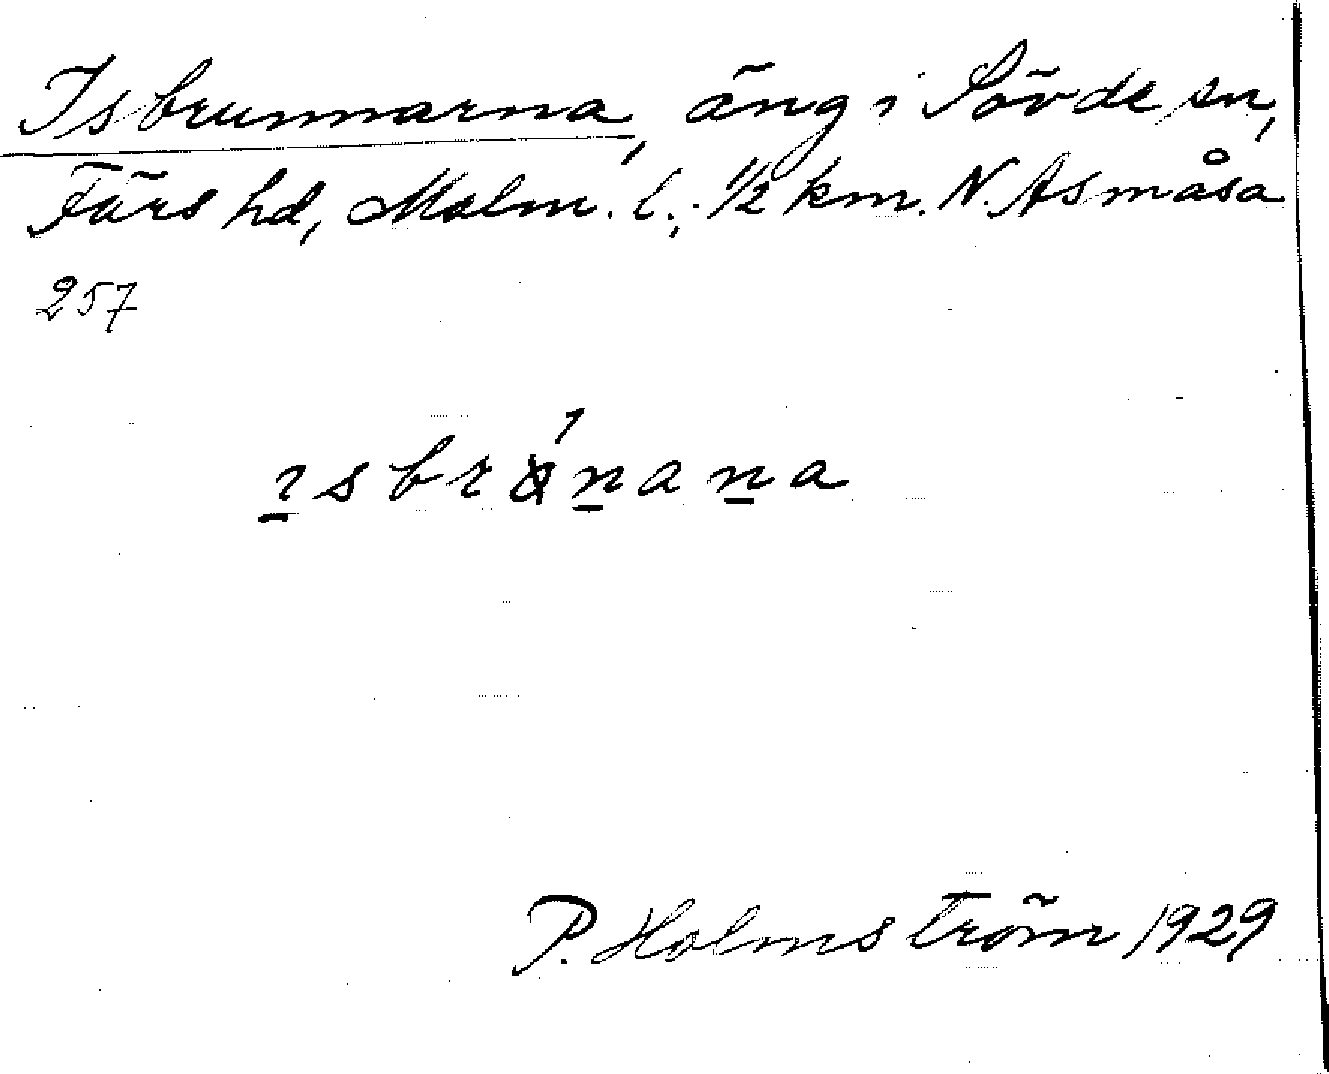 Isbrunnarna, äng i Sövde sn,
Färs hd, Malm. l.; 1/2 km. N. Asmåsa
257
P. Holmström 1929